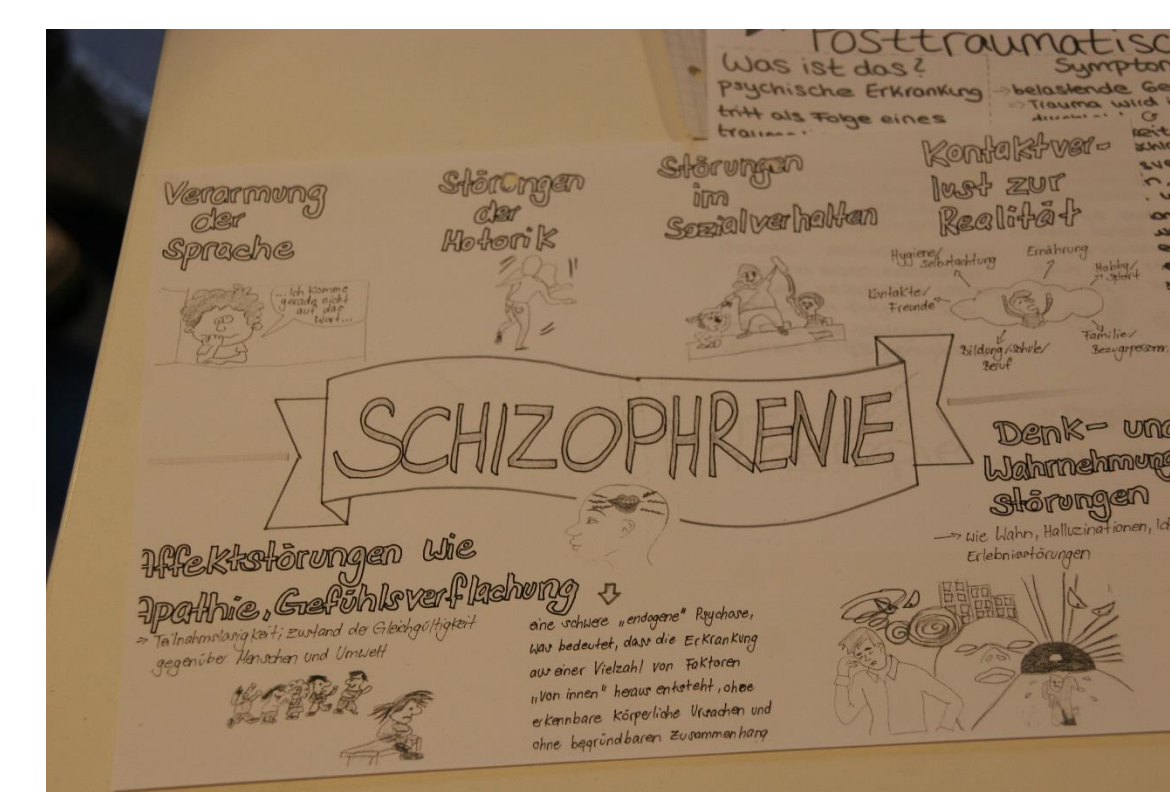 Posttraumatisc
Was ist das?
Psychische Erkrankung
tritt als Folge eines
Sympton
→ belastende Ge
→ Trauma wird i
Verarmung
der
Sprache
...Ich komme
gerade nicht
auf das
Wort...
Störungen
der
Motorik
Störungen
im
Sozialverhalten
Kontaktver-
lust zur
Realität
Hygiene/
Selbstachtung
Ernährung
Hobby/
Sport
Kontakte/
Freunde
Bildung/Schule/
Beruf
Familie/
Bezugsperson.
SCHIZOPHRENIE
Denk- und
Wahrnehmung
störungen
→ wie Wahn, Halluzinationen, Ich
Erlebnisstörungen
Affektstörungen wie
Apathie, Gefühlsverflachung
→ Teilnahmslosigkeit; Zustand der Gleichgültigkeit
gegenüber Menschen und Umwelt
eine schwere „endogene" Psychose,
was bedeutet, dass die Erkrankung
aus einer Vielzahl von Faktoren
„von innen" heraus entsteht, ohne
erkennbare Körperliche Ursachen und
ohne begründbaren Zusammenhang